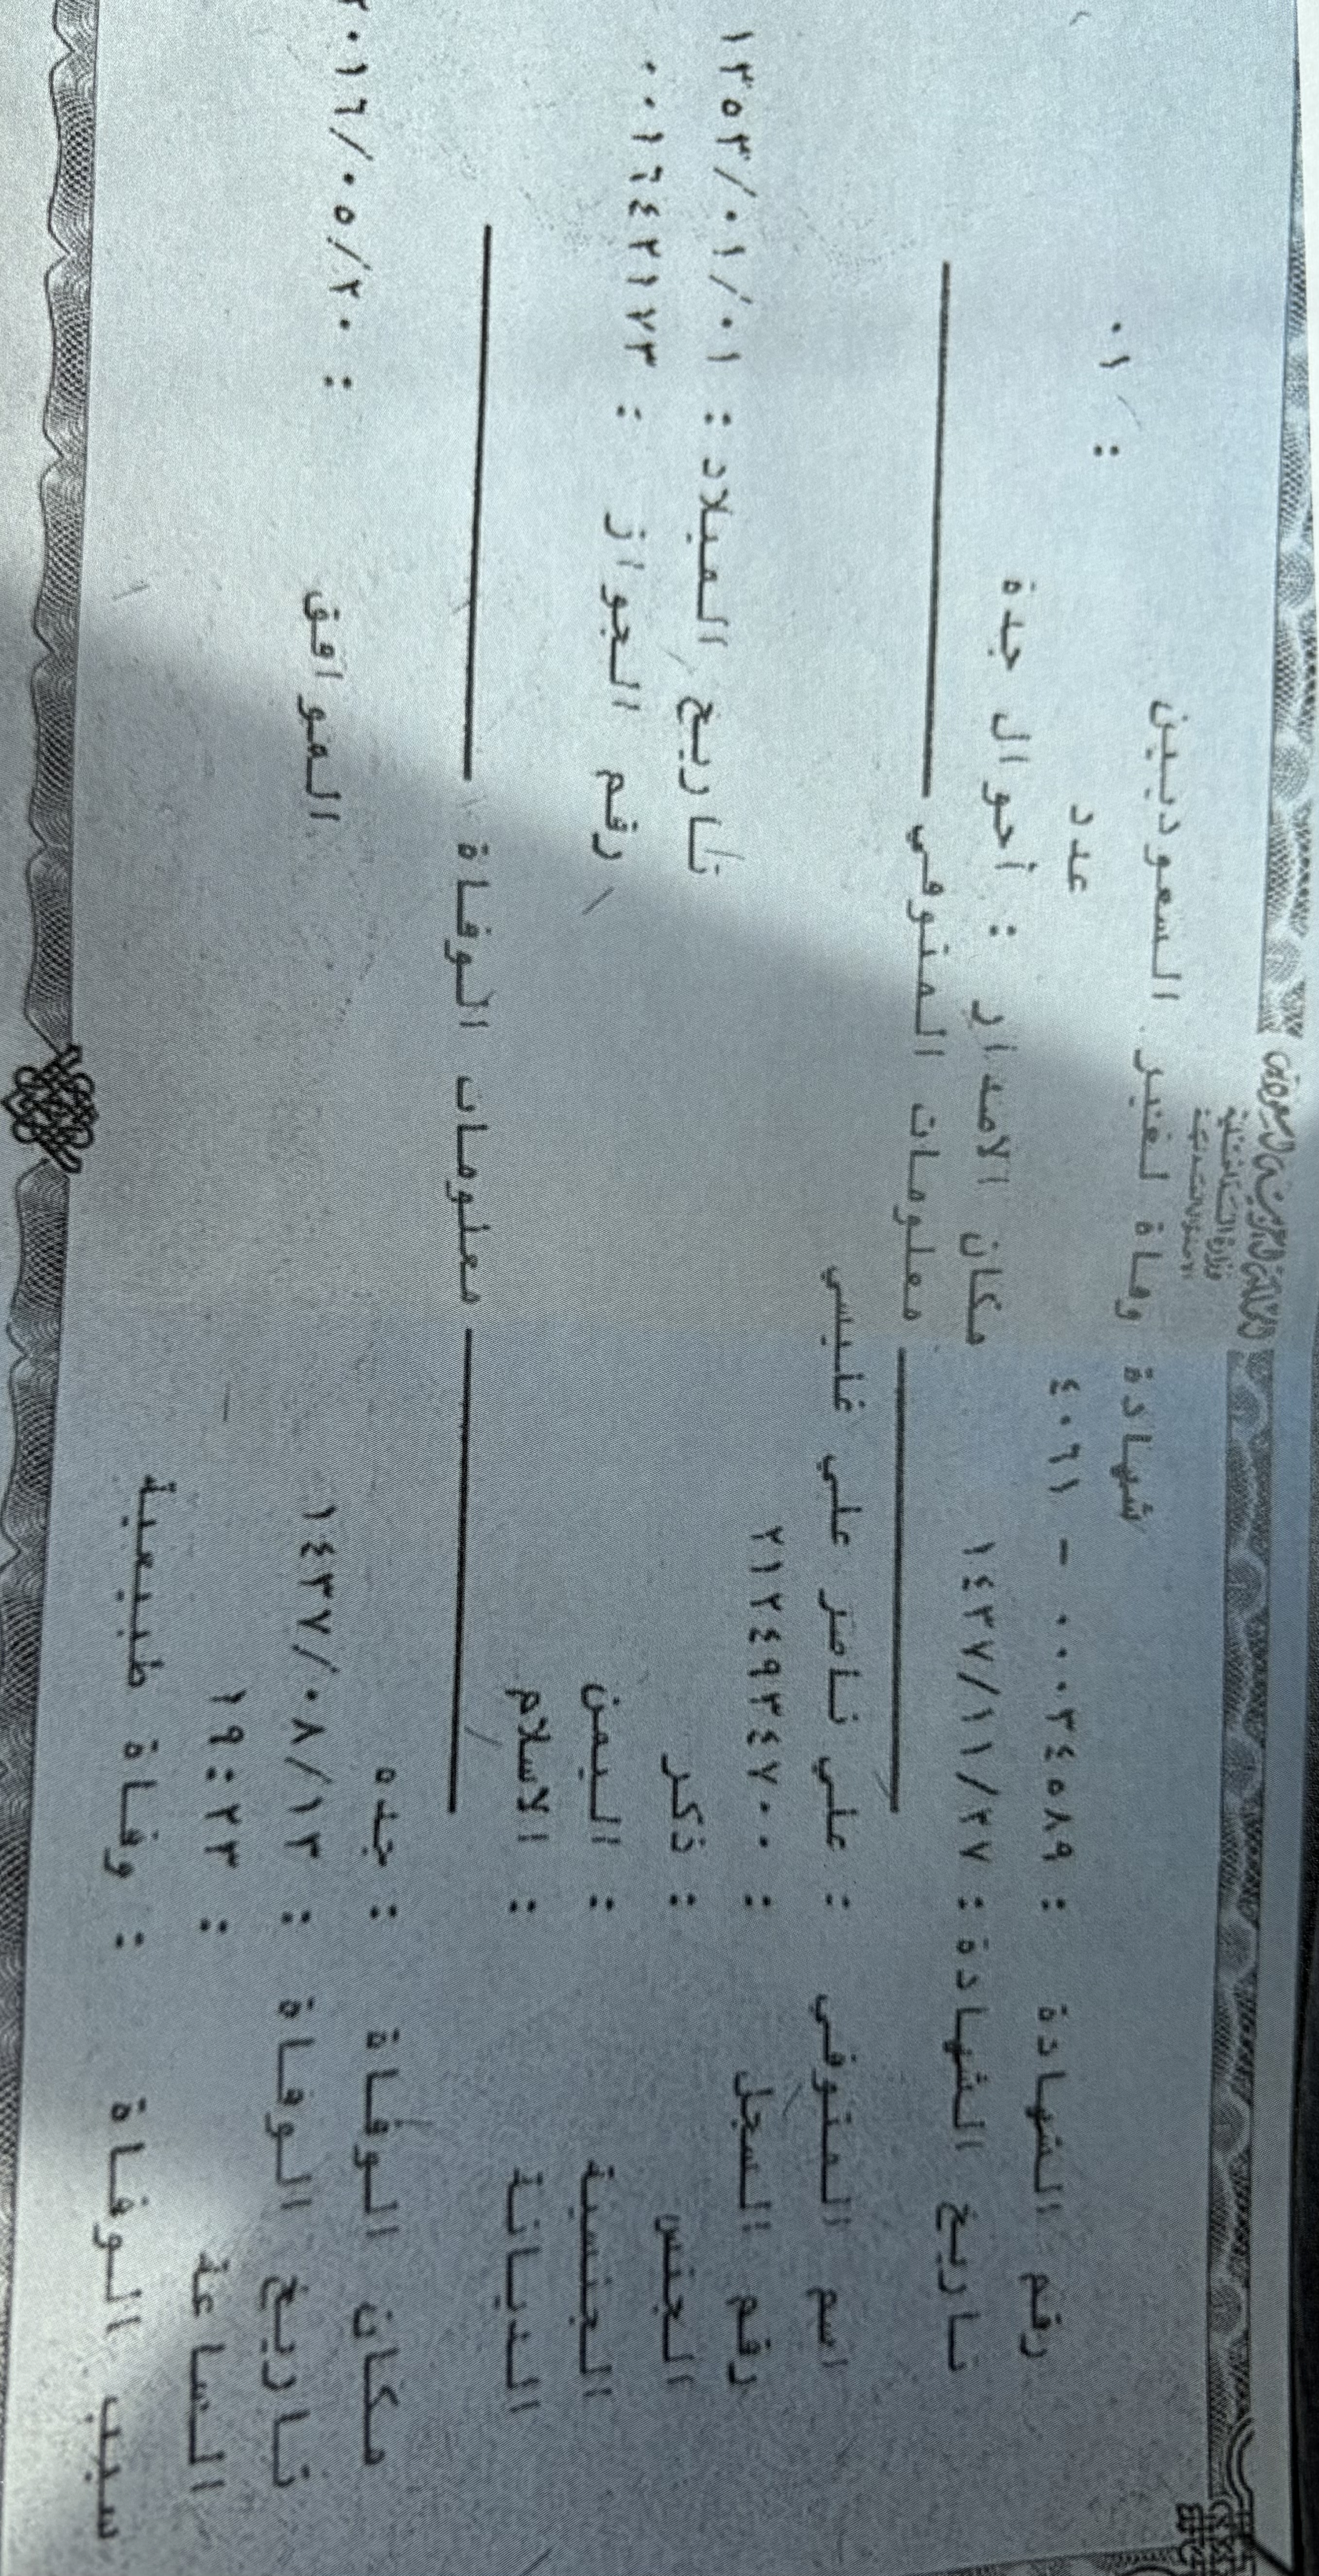 المملكة العربية السعودية
وزارة الداخلية
الأحوال المدنية
شهادة وفاة لغير السعوديين
رقم الشهادة : ٠٠٠٣٤٥٨٩ - ٤٠٦١ عدد : ٠١
تاريخ الشهادة : ١٤٣٧/١١/٢٧ مكان الاصدار : أحوال جدة
معلومات المتوفي
اسم المتوفي : علي ناصر علي غليسي
رقم السجل : ٢١٢٤٩٣٤٧٠٠ تاريخ الميلاد : ١٣٥٣/٠١/٠١
الجنس : ذكر رقم الجواز : ٠٠١٦٤٢١٧٣
الجنسية : اليمن
الديانة : الاسلام
معلومات الوفاة
مكان الوفاة : جده
تاريخ الوفاة : ١٤٣٧/٠٨/١٣ الموافق : ٢٠١٦/٠٥/٢٠
الساعة : ١٩:٢٣
سبب الوفاة : وفاة طبيعية